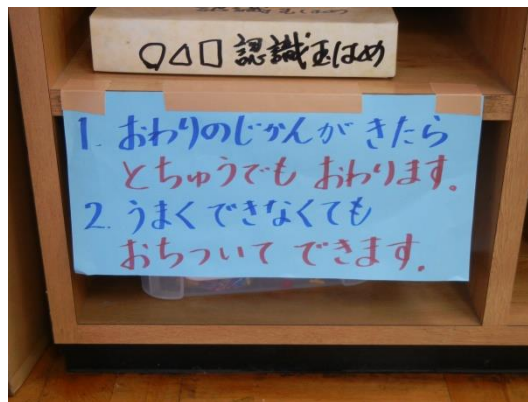 ○△□ 認識玉はめ
1. おわりのじかんが きたら
とちゅうでも おわります。
2. うまく できなくても
おちついて できます。